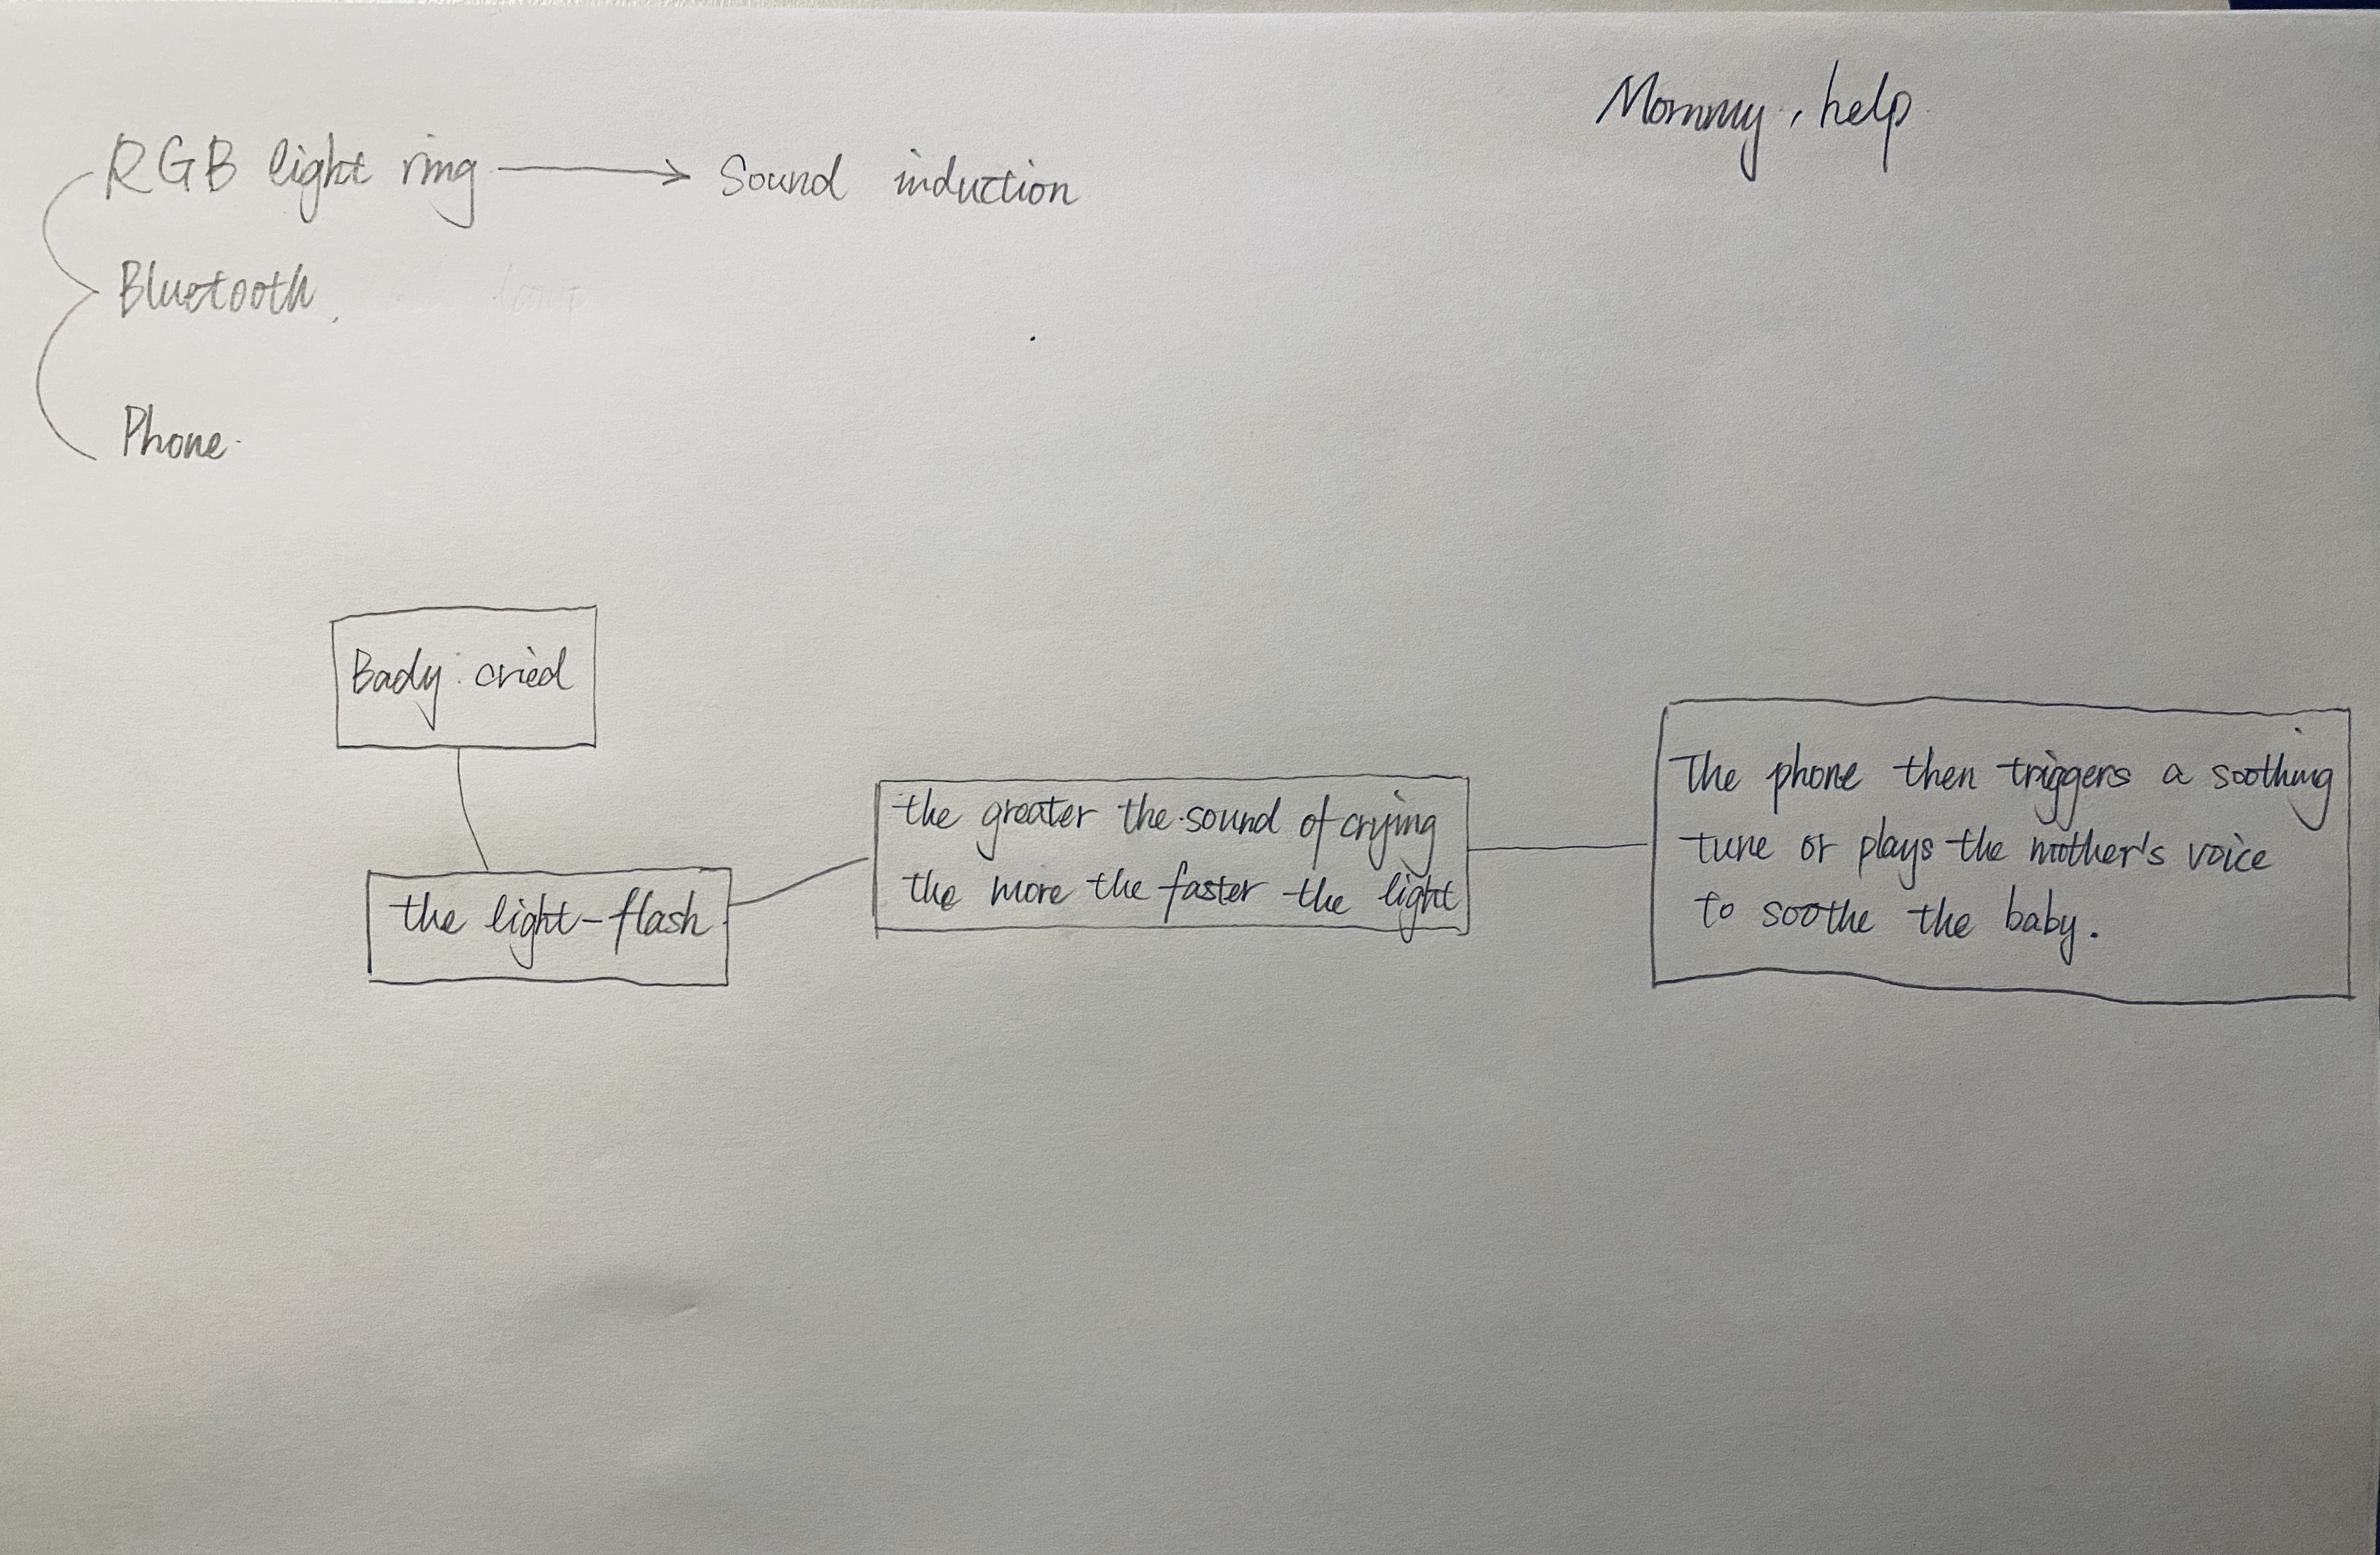 Mommy, help
RGB light ring → Sound induction
Bluetooth
Phone.
Bady: cried
the light-flash
the greater the sound of crying
the more the faster the light
The phone then triggers a soothing
tune or plays the mother's voice
to soothe the baby.